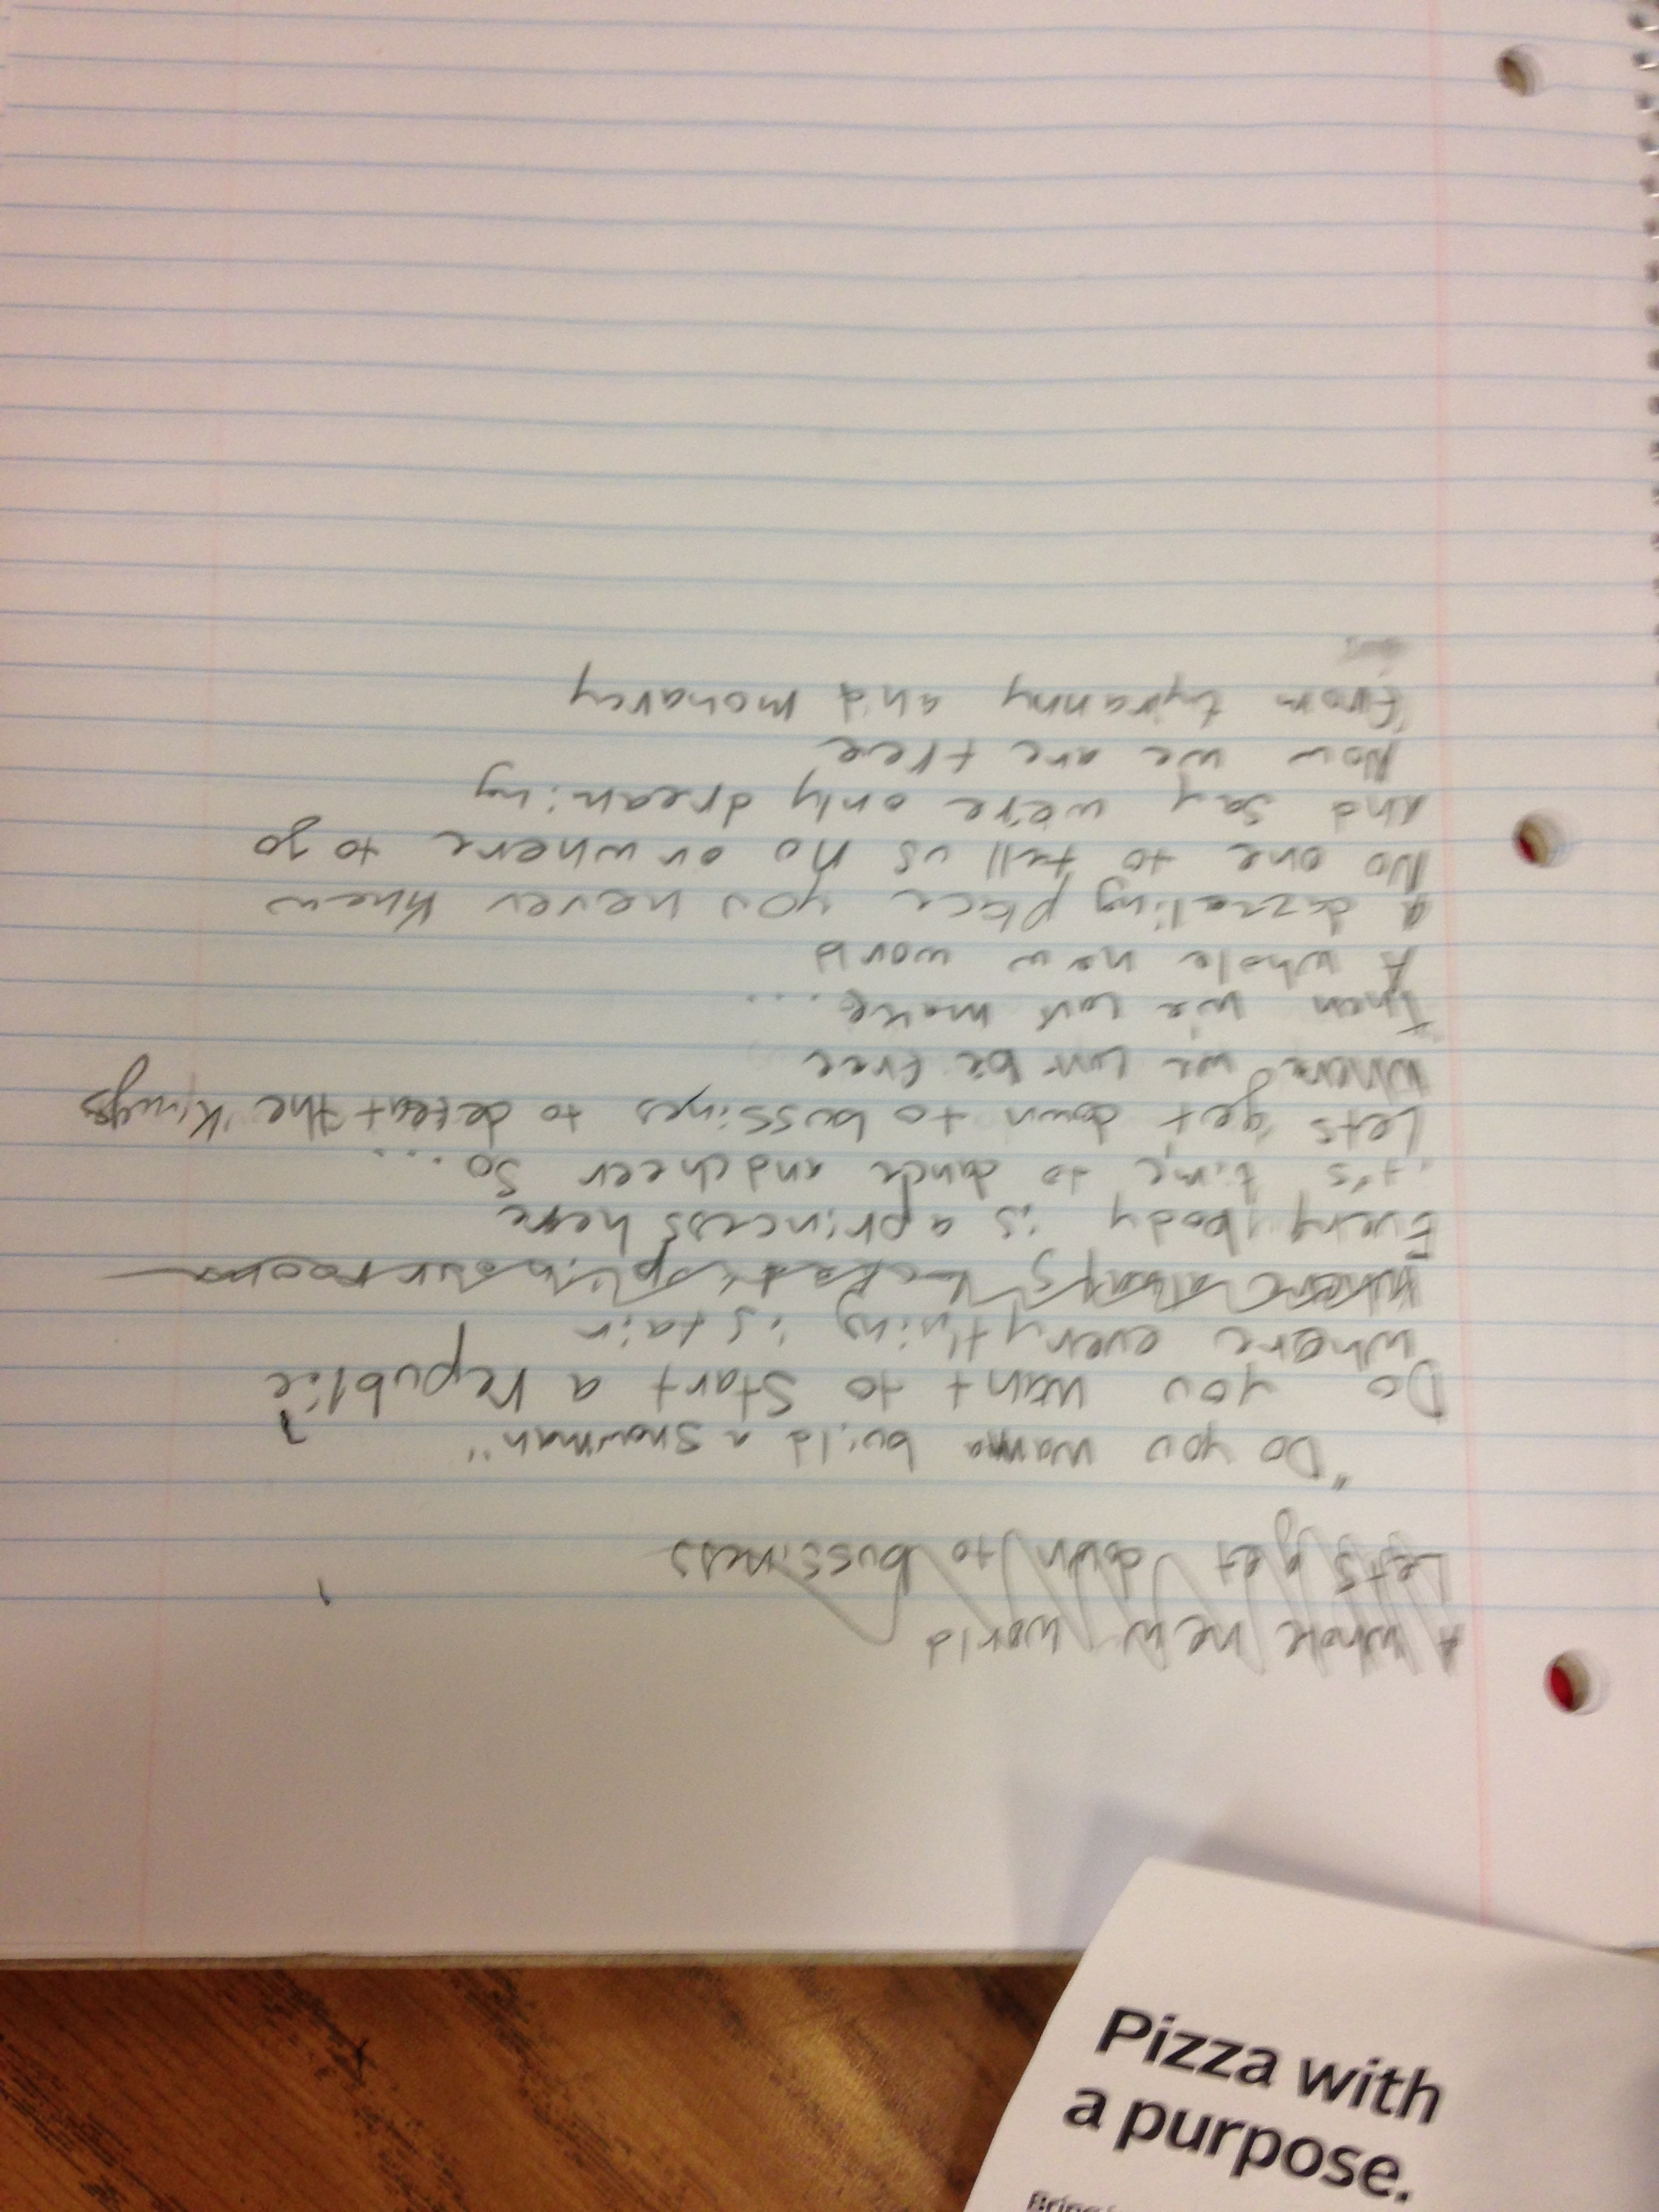 A whole new world
Lets get down to bussiness
"Do you wanna build a snowman"
Do you want to start a republic?
where everything is fair
where always in our room
Everybody is a princess here
it's time to dance and cheer so...
Lets get down to bussines to defeat the Kings
Where we can be free
Then we can make...
A whole new world
A dazzaling place you never knew
No one to tell us no or where to go
And say we're only dreaming
Now we are free
from tyranny and monarcy
Pizza with
a purpose.